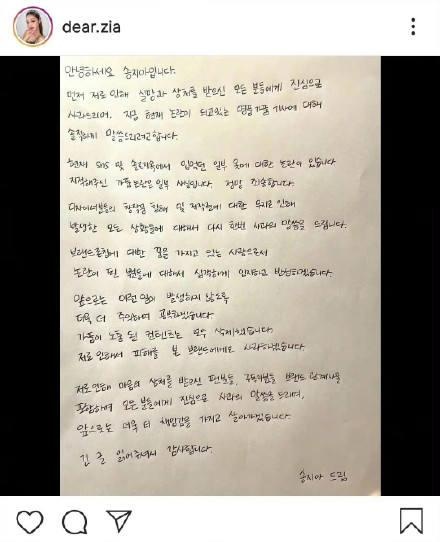 dear.zia
안녕하세요 송지아입니다.
먼저 저로 인해 실망과 상처를 받으신 모든 분들에게 진심으로
사과드리며, 지금 현재 논란이 되고있는 명품가품 기사에 대해
솔직하게 말씀드리려고합니다.
현재 SNS 및 솔로지옥에서 입었던 일부 옷에 대한 논란이 있습니다
지적해주신 가품논란은 일부 사실입니다. 정말 죄송합니다.
디자이너분들의 창작물 침해 및 저작권에 대한 무지로 인해
발생한 모든 상황들에 대해서 다시 한번 사과의 말씀을 드립니다.
브랜드론칭에 대한 꿈을 가지고 있는 사람으로서
논란이 된 부분들에 대해서 심각하게 인지하고 반성하겠습니다.
앞으로는 이런 일이 발생하지 않도록
더욱 더 주의하며 공부하겠습니다.
가품이 노출 된 컨텐츠는 모두 삭제했습니다.
저로 인해서 피해를 본 브랜드에게도 사과하겠습니다.
저로 인해 마음의 상처를 받으신 팬분들, 구독자분들 브랜드 관계자를
포함하여 모든 분들에게 진심으로 사과의 말씀을 드리며,
앞으로는 더욱 더 책임감을 가지고 살아가겠습니다.
긴 글 읽어주셔서 감사합니다.
송지아 드림